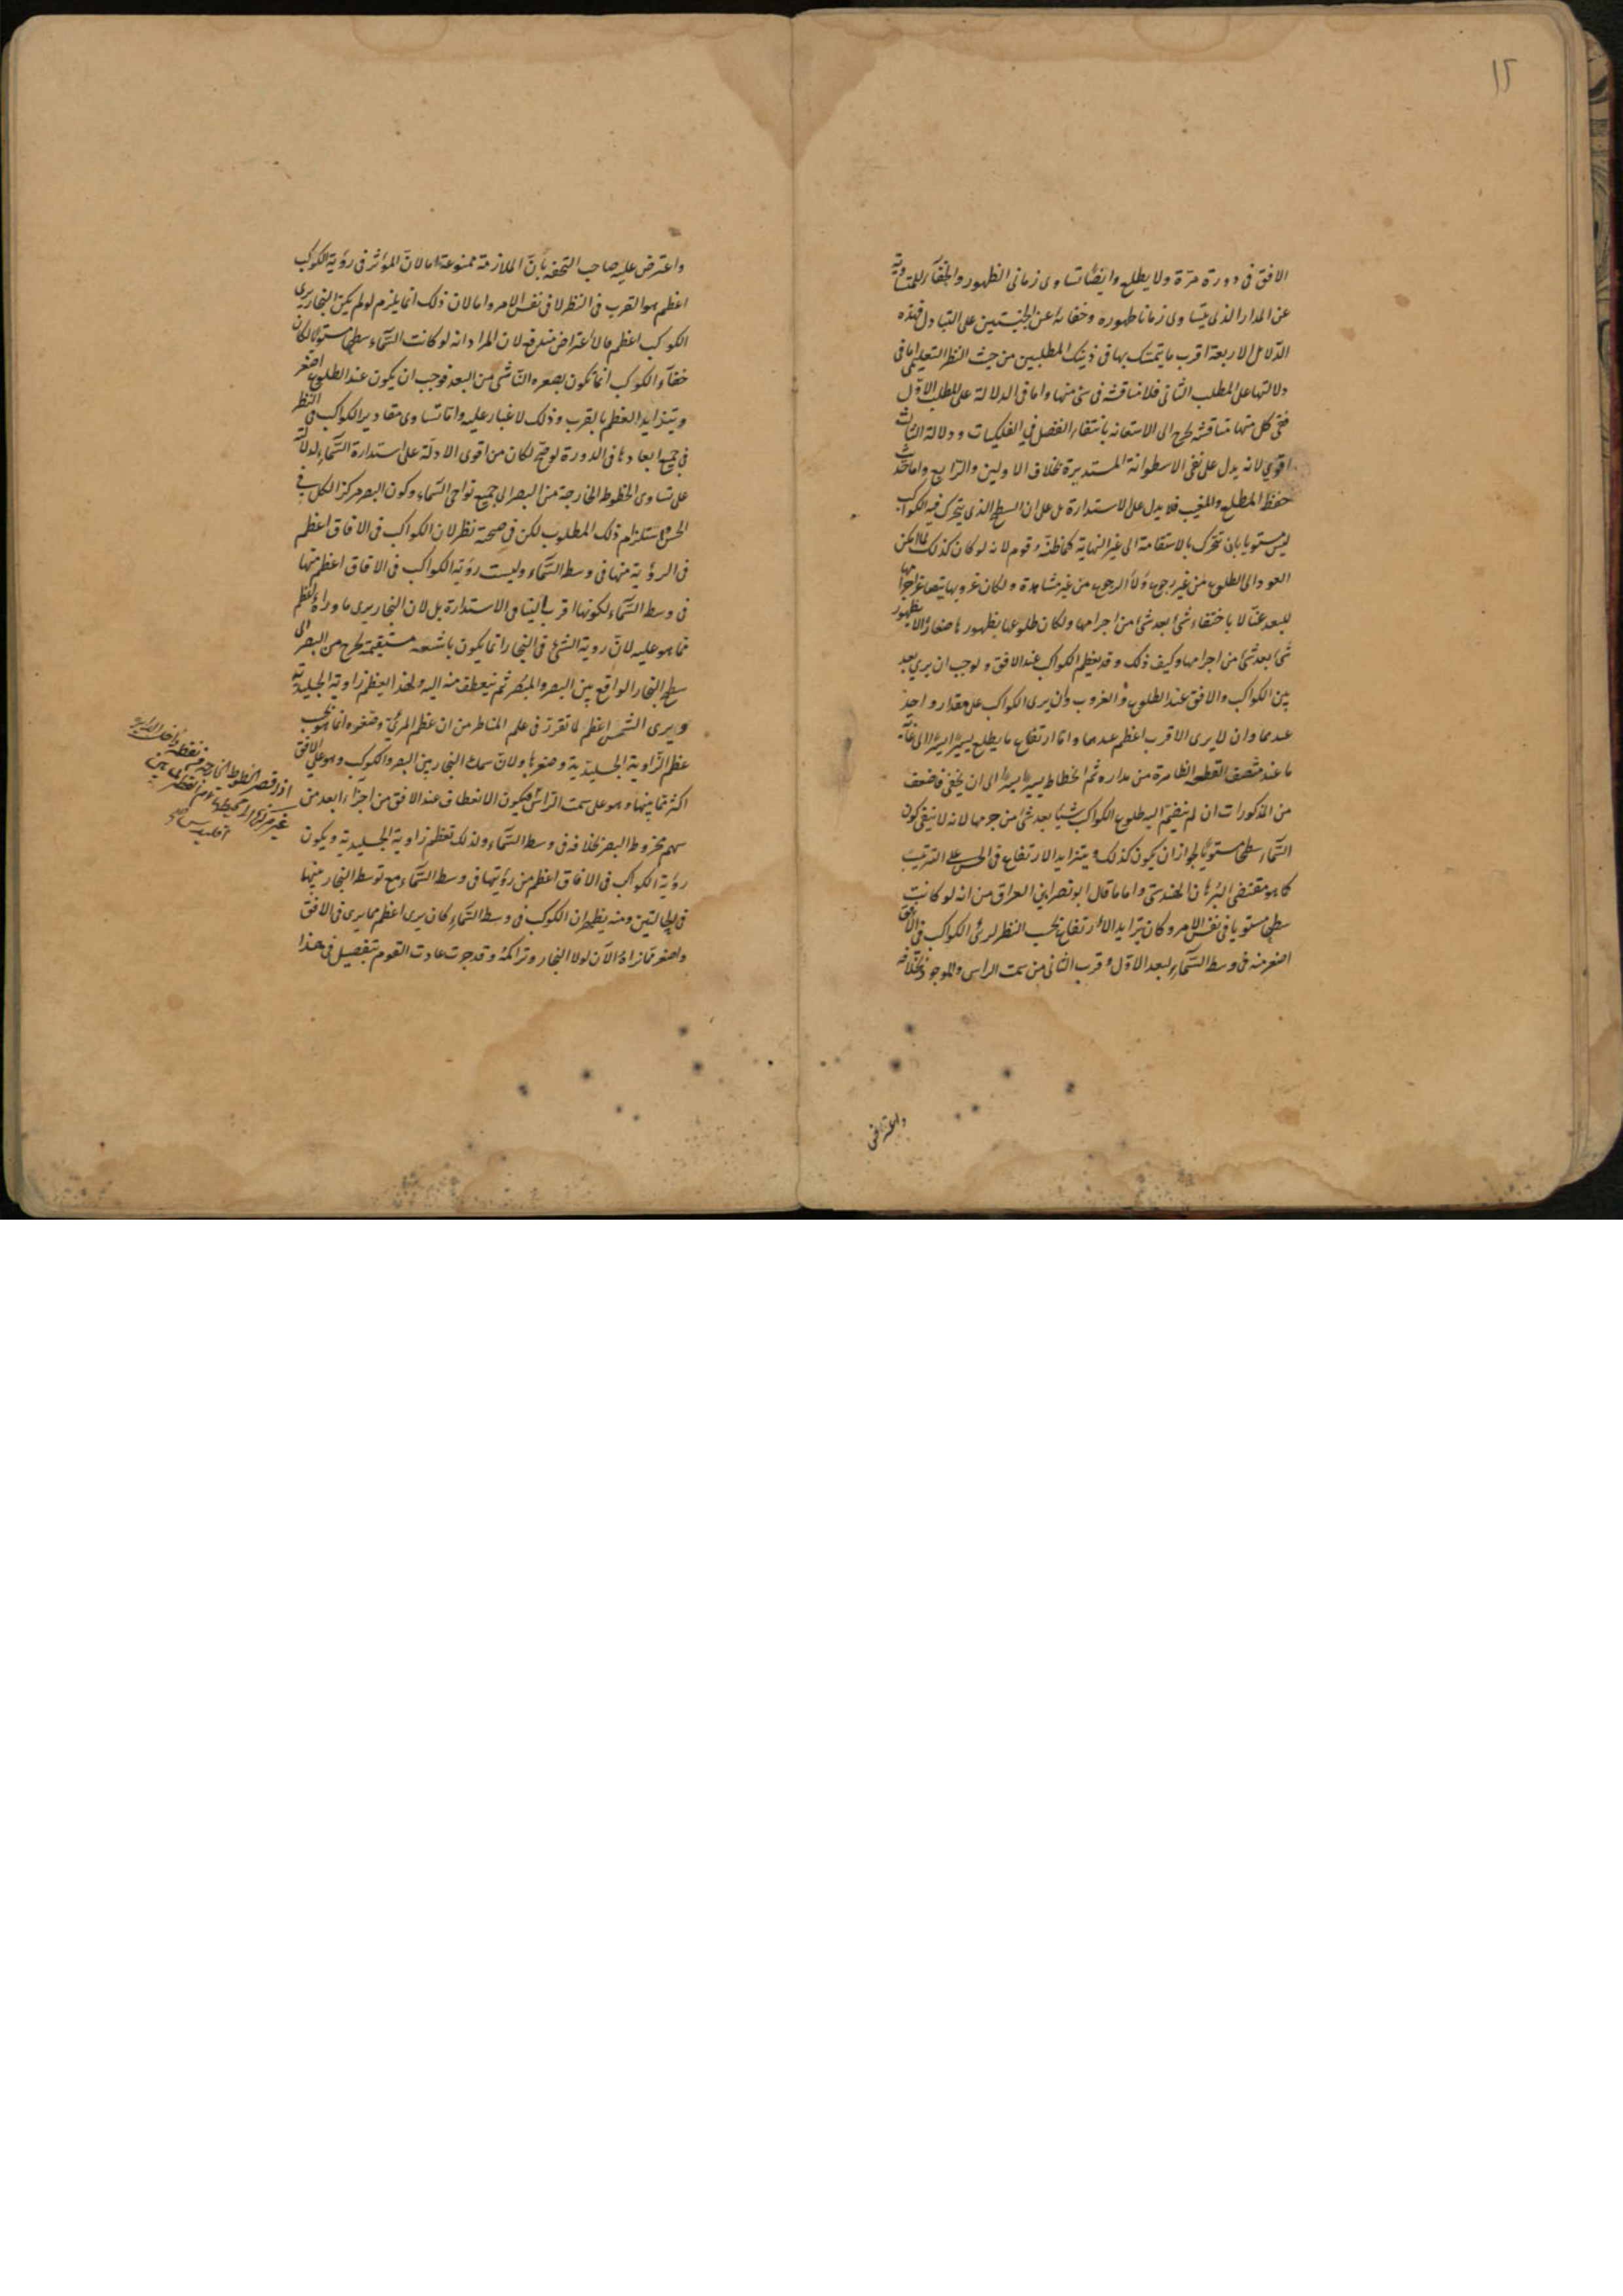 ١٢
الافق فى دورة مرة ولا يطلع وايضا تساوى زمانى الظهور والخفاء للمتساوية
عن المدار الذى يتساوى زمانا ظهوره وخفائه عن الجنبتين على التبادل فهذه
الدلائل الاربعة اقرب ما يتمسك بها فى ذينك المطلبين من حيث النظر التعليمى اما فى
دلالتها على المطلب الثانى فلا مناقشة فى شئ منها واما فى الدلالة على المطلب الاول
ففى كل منها مناقشة تحوج الى الاستعانة بانتفاء الفصل فى الفلكيات ودلالة الثالث
اقوى لانه يدل على نفى الاسطوانة المستديرة بخلاف الاولين والرابع واما
حفظ المطلع والمغيب فلا يدل على الاستدارة بل على ان السطح الذى يتحرك فيه الكواكب
ليس مستويا بان تتحرك بالاستقامة الى غير النهاية كما ظنه قوم لانه لو كان كذلك لما امكن
العود الى الطلوع من غير رجوع ولا الرجوع من غير مشاهدة ولكان غروبها بتصاغر اجرامها
للبعد عنا لا باختفاء شئ بعد شئ من اجرامها ولكان طلوعها بظهورها صغارا لا بظهور
شئ بعد شئ من اجرامها وكيف ذلك وقد يعظم الكواكب عند الافق ولوجب ان يرى بعد
بين الكواكب والافق عند الطلوع والغروب وان يرى الكواكب على مقدار واحد
عندهما وان لا يرى الاقرب اعظم عندهما واما ارتفاع ما يطلع يسيرا يسيرا الى غاية
ما عند منتصف القطعة الظاهرة من مداره ثم انحطاط يسيرا يسيرا الى ان يخفى فاضعف
من المذكورات ان لم ينضم اليه طلوع الكواكب شيئا بعد شئ من جرمها لانه لا ينفى كون
السماء سطحا مستويا لجواز ان يكون كذلك ويتزايد الارتفاع فى الحس على الترتيب
كما هو مقتضى البرهان الهندسى واما ما قال ابو نصر ابن العراق من انه لو كانت
سطحا مستويا فى نفس الامر وكان تزايد الارتفاع بحسب النظر لرئ الكواكب فى الافق
اصغر منه فى وسط السماء لبعد الاول وقرب الثانى من سمت الراس والموجود بخلافه
واعترض
واعترض عليه صاحب التحفه بان الملازمة ممنوعة اما لان المؤثر فى رؤية الكوكب
اعظم هو القرب فى النظر لا فى نفس الامر واما لان ذلك انما يلزم لو لم يكن البخار يرى
الكوكب اعظم والاعتراض مندفع لان المراد انه لو كانت السماء سطحا مستويا لكان
خفاء الكوكب انما تكون بصغره الناشى من البعد فوجب ان يكون عند الطلوع اصغر
ويتزايد العظم بالقرب وذلك لا غبار عليه واما تساوى مقادير الكواكب فى النظر
فى جميع ابعادها فى الدورة لو صح لكان من اقوى الادلة على استدارة السماء لدلالته
على تساوى الخطوط الخارجة من البصر الى جميع نواحى السماء وكون البصر مركز الكل فى
الحس واستلزام ذلك المطلوب لكن فى صحته نظر لان الكواكب فى الافاق اعظم
فى الرؤية منها فى وسط السماء وليست رؤية الكواكب فى الافاق اعظم منها
فى وسط السماء لكونها اقرب الينا فى الاستدارة بل لان البخار يرى ما وراءه اعظم
مما هو عليه لان روية الشئ فى البخار انما يكون باشعة مستقيمة تخرج من البصر الى
سطح البخار الواقع بين البصر والمبصر ثم تنعطف منه اليه ولهذا يعظم زاوية الجليدية
ويرى الشمس اعظم لما تقرر فى علم المناظر من ان عظم المرئى وصغره انما هو بحسب
عظم الزاوية الجليدية وصغرها ولان سمك البخار بين البصر والكوكب وهو على الافق
اكثر مما بينهما وهو على سمت الراس فيكون الانعطاف عند الافق من اجزاء ابعد من
سهم مخروط البصر بخلافه فى وسط السماء ولذلك تعظم زاوية الجليدية ويكون
رؤية الكواكب فى الافاق اعظم من رؤيتها فى وسط السماء مع توسط البخار بينهما
فى الحالتين ومنه يظهر ان الكوكب فى وسط السماء كان يرى اعظم مما يرى فى الافق
واصغر مما نراه الآن لولا البخار وتراكمه وقد جرت عادت القوم بتفصيل فى هذا
اذ اقصر الخطوط الخارجة من نقطة داخل الدايرة
غير مركزها الى محيطها
اقليدس